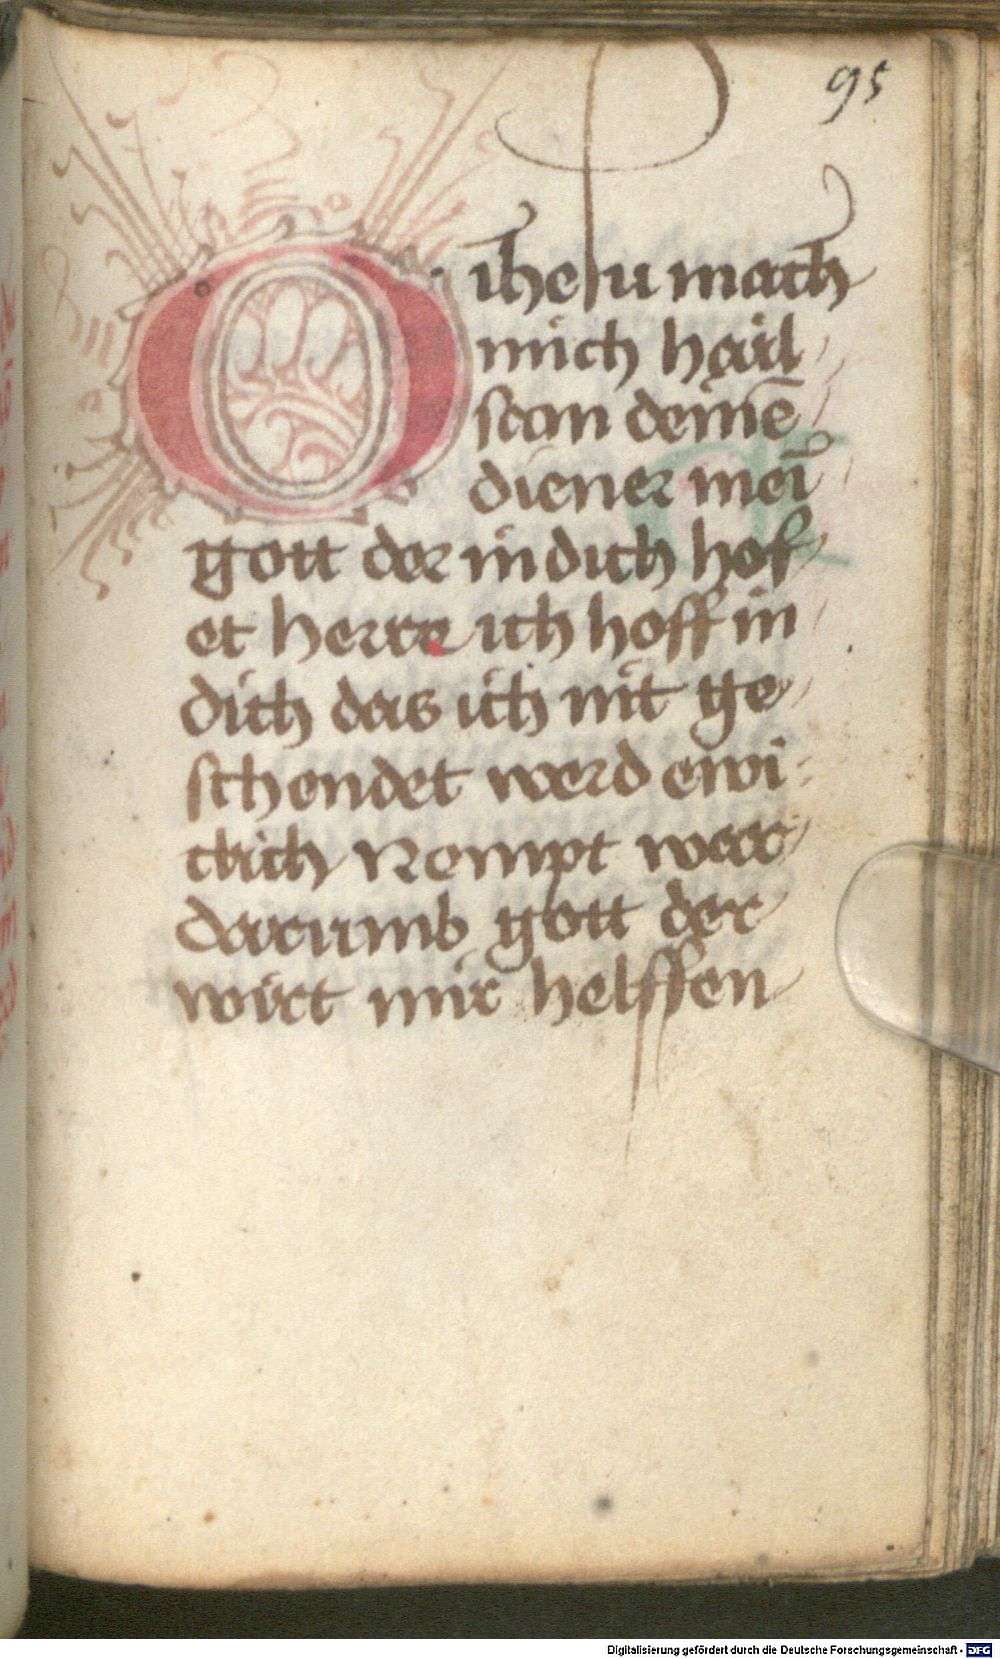 95
O ihesu mach
mich hail
scon deinē
diener mei
gott der in dich hof
et herre ich hoff in
dich das ich nit ge
schendet werd ewi
clich Nempt war
darumb gott der
wirt mir helffen
Digitalisierung gefördert durch die Deutsche Forschungsgemeinschaft - DFG